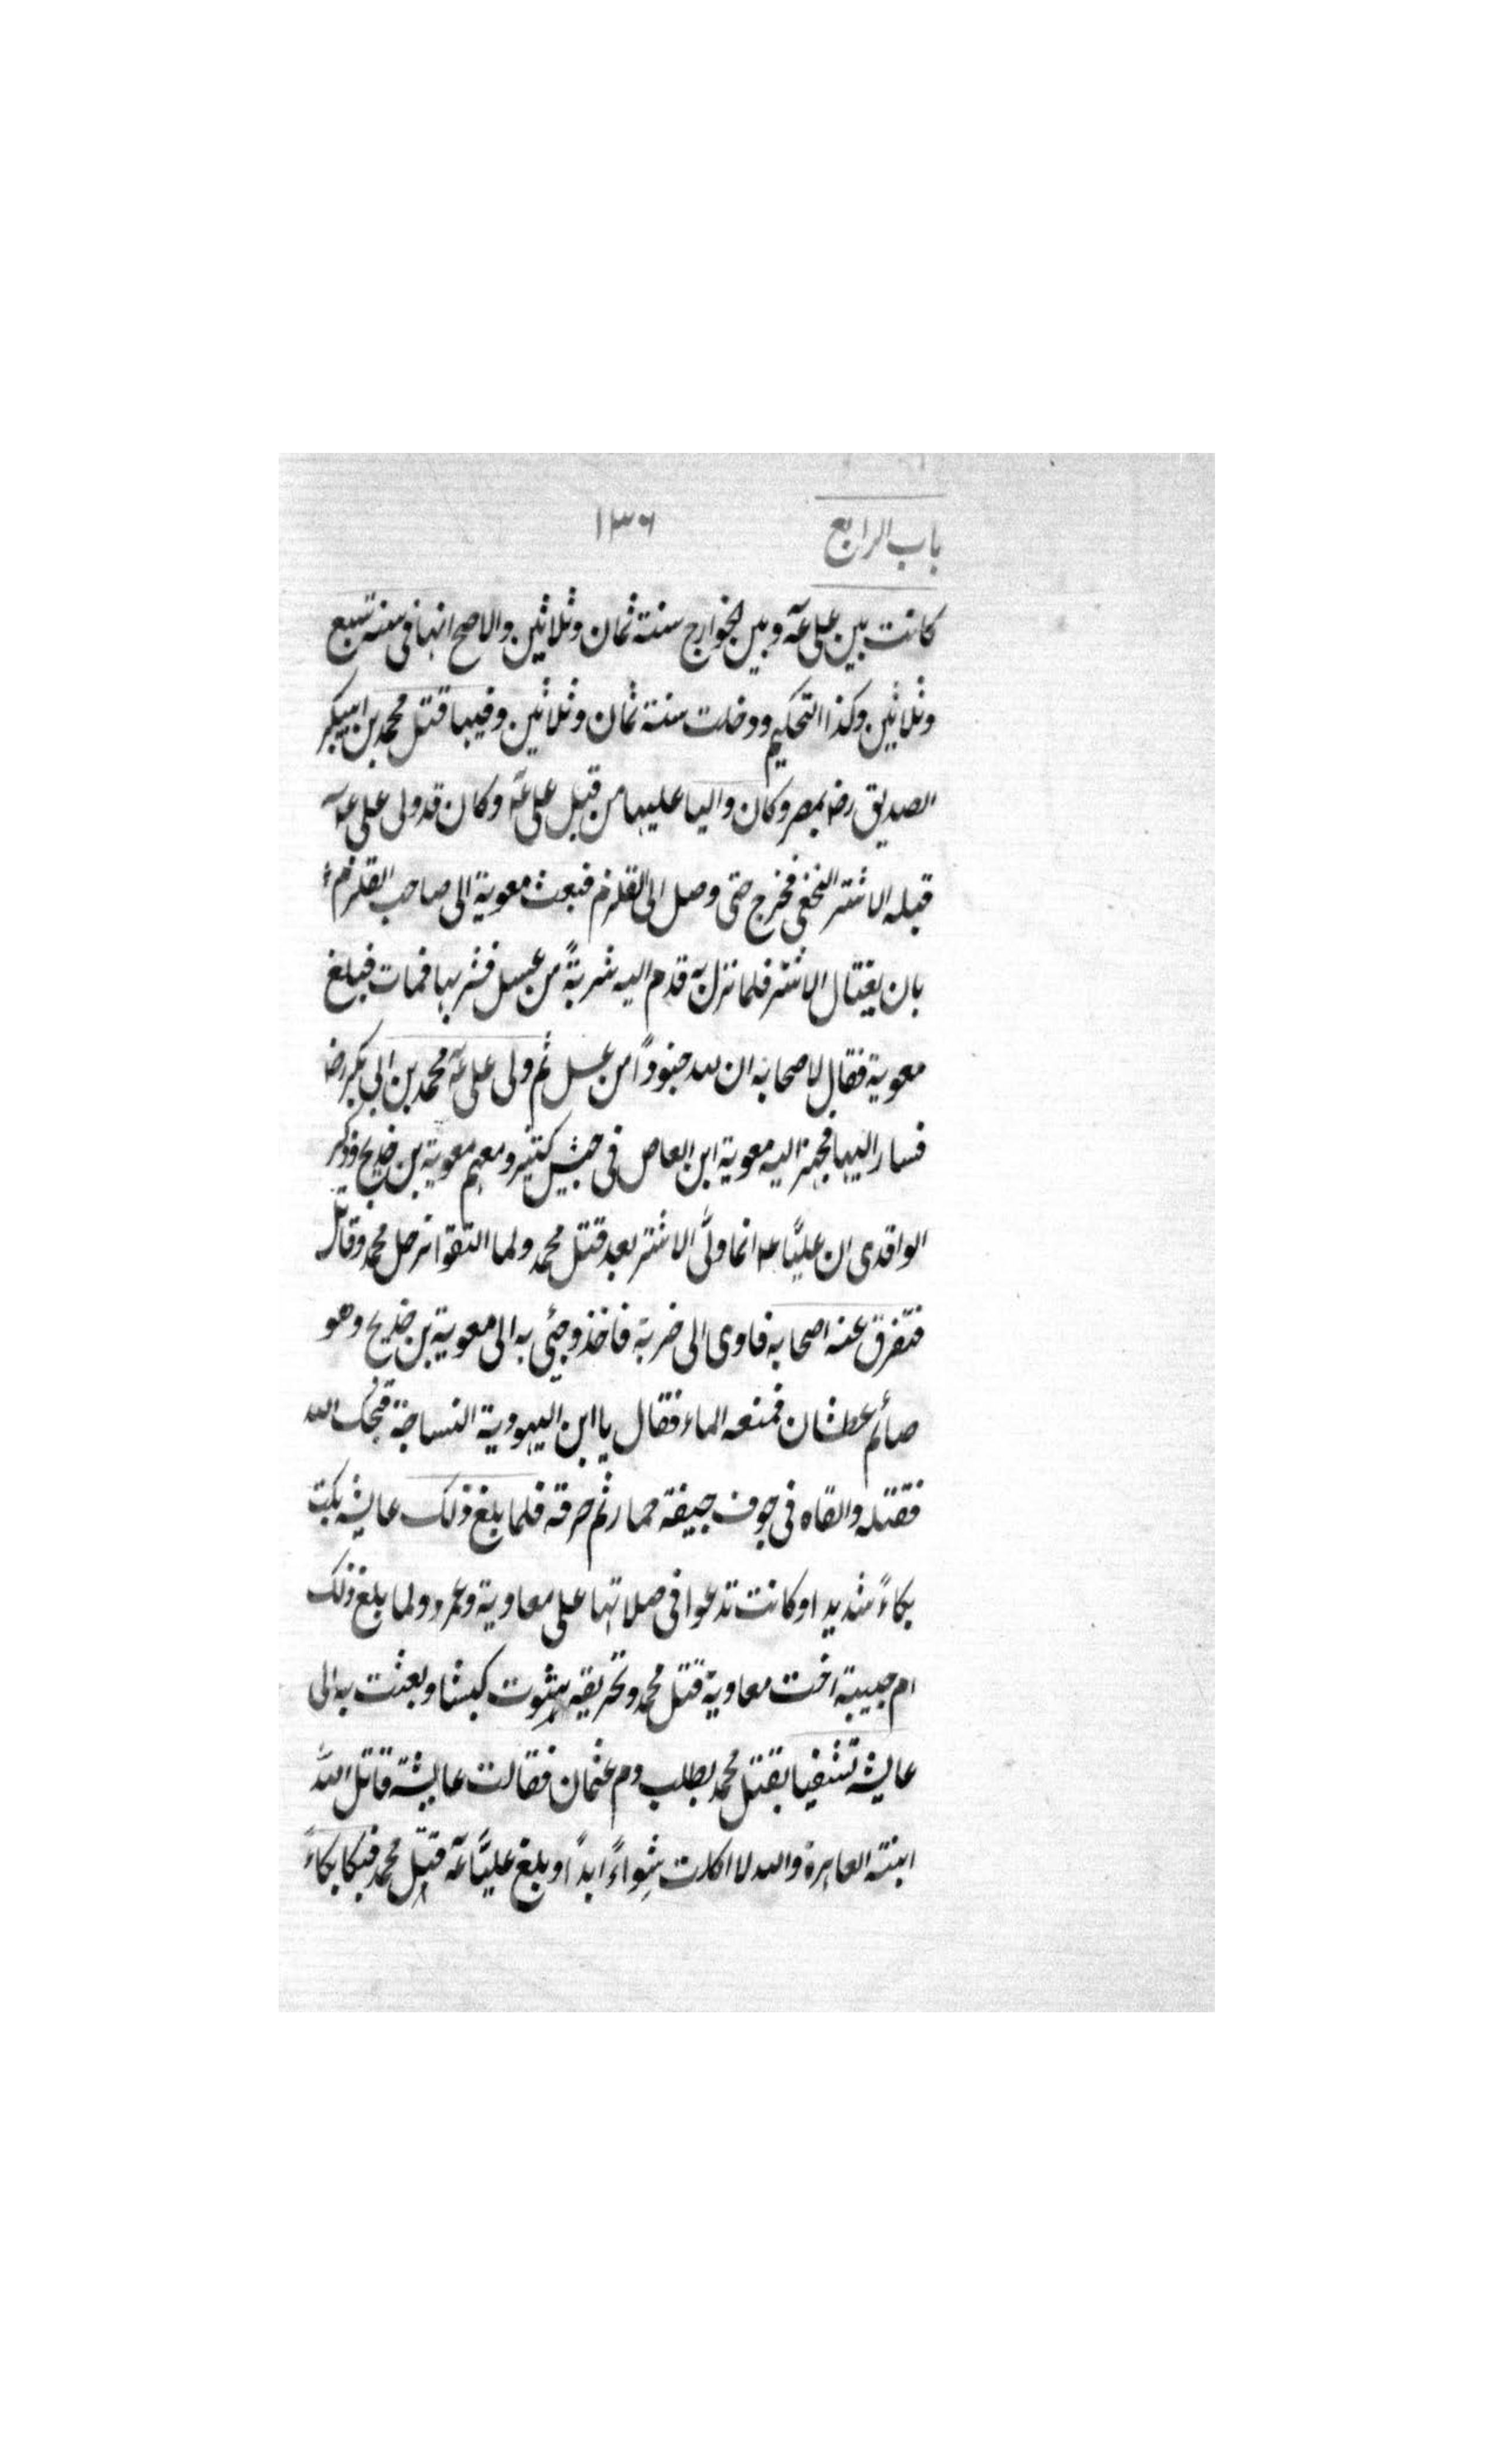 باب الرابع ۱۳۶
كانت بين على عه وبين الخوارج سنة ثمان وثلاثين والاصح انها فى سنة تسع
وثلاثين وكذا التحكيم ودخلت سنة ثمان وثلاثين وفيها قتل محمد بن ابيبكر
الصديق رضه بمصر وكان واليا عليها من قبل على عه وكان قد ولى على عه
قبله الاشتر النخعى فخرج حتى وصل الى القلزم فبعث معوية الى صاحب القلزم
بان يغتال الاشتر فلما نزل به قدم اليه شربةً من عسل فشربها فمات فبلغ
معوية فقال لاصحابه ان لله جنوداً من عسل ثم ولى على عه محمد بن ابى بكر رضه
فسار اليها فجهز اليه معوية ابن العاص فى جيش كثير ومعهم معوية بن خديج وذكر
الواقدى ان عليًّا عه انما ولَّى الاشتر بعد قتل محمد ولما التقوا نزل محمد وقاتل
فتفرق عنه اصحابه فاوى الى خربة فاخذ وجئى به الى معوية بن خديج وهو
صائم عطشان فمنعه الماء فقال يا ابن اليهودية النساجة قبحك الله
فقتله والقاه فى جوف جيفة حمار ثم حرقه فلما بلغ ذلك عايشه بكت
بكاءً شديدا وكانت تدعوا فى صلاتها على معاوية وعمرو ولما بلغ ذلك
ام حبيبة اخت معاوية قتل محمد وتحريقه شوت كبشا وبعثت به الى
عايشه تشفيا بقتل محمد بطلب دم عثمان فقالت عايشة قاتل الله
ابنته العاهرة والله لا اكلت شِواءً ابداً وبلغ عليًّا عه قتل محمد فبكا بكاءً